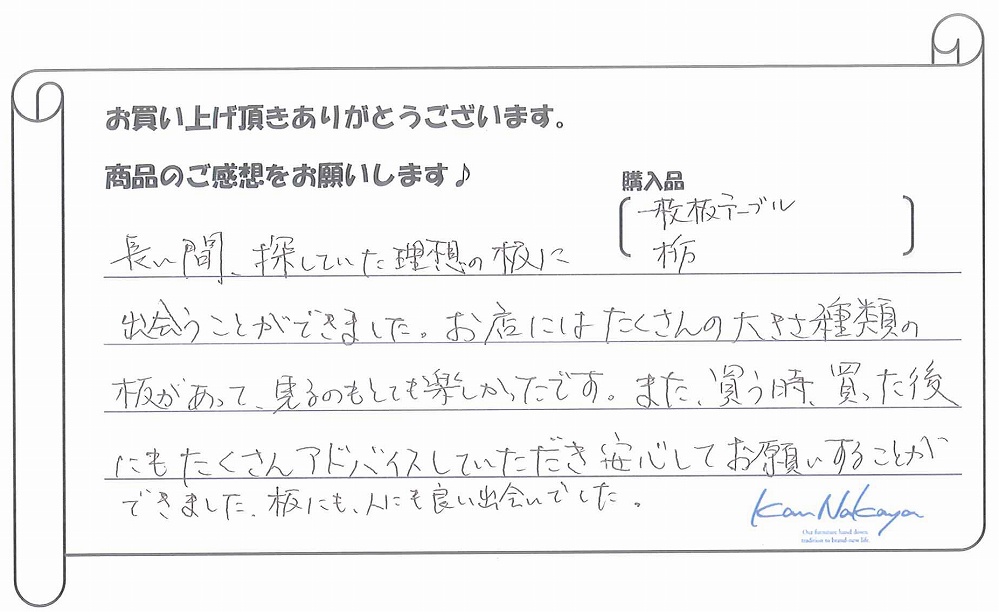 お買い上げ頂きありがとうございます。
商品のご感想をお願いします♪
購入品
一枚板テーブル
栃
長い間、探していた理想の板に
出会うことができました。お店にはたくさんの大きさ種類の
板があって、見るのもとても楽しかったです。また、買う時、買った後
にもたくさんアドバイスしていただき安心してお願いすることが
できました。板にも、人にも良い出会いでした。
Kan Nakaya
Our furniture hand down
tradition to brand-new life.